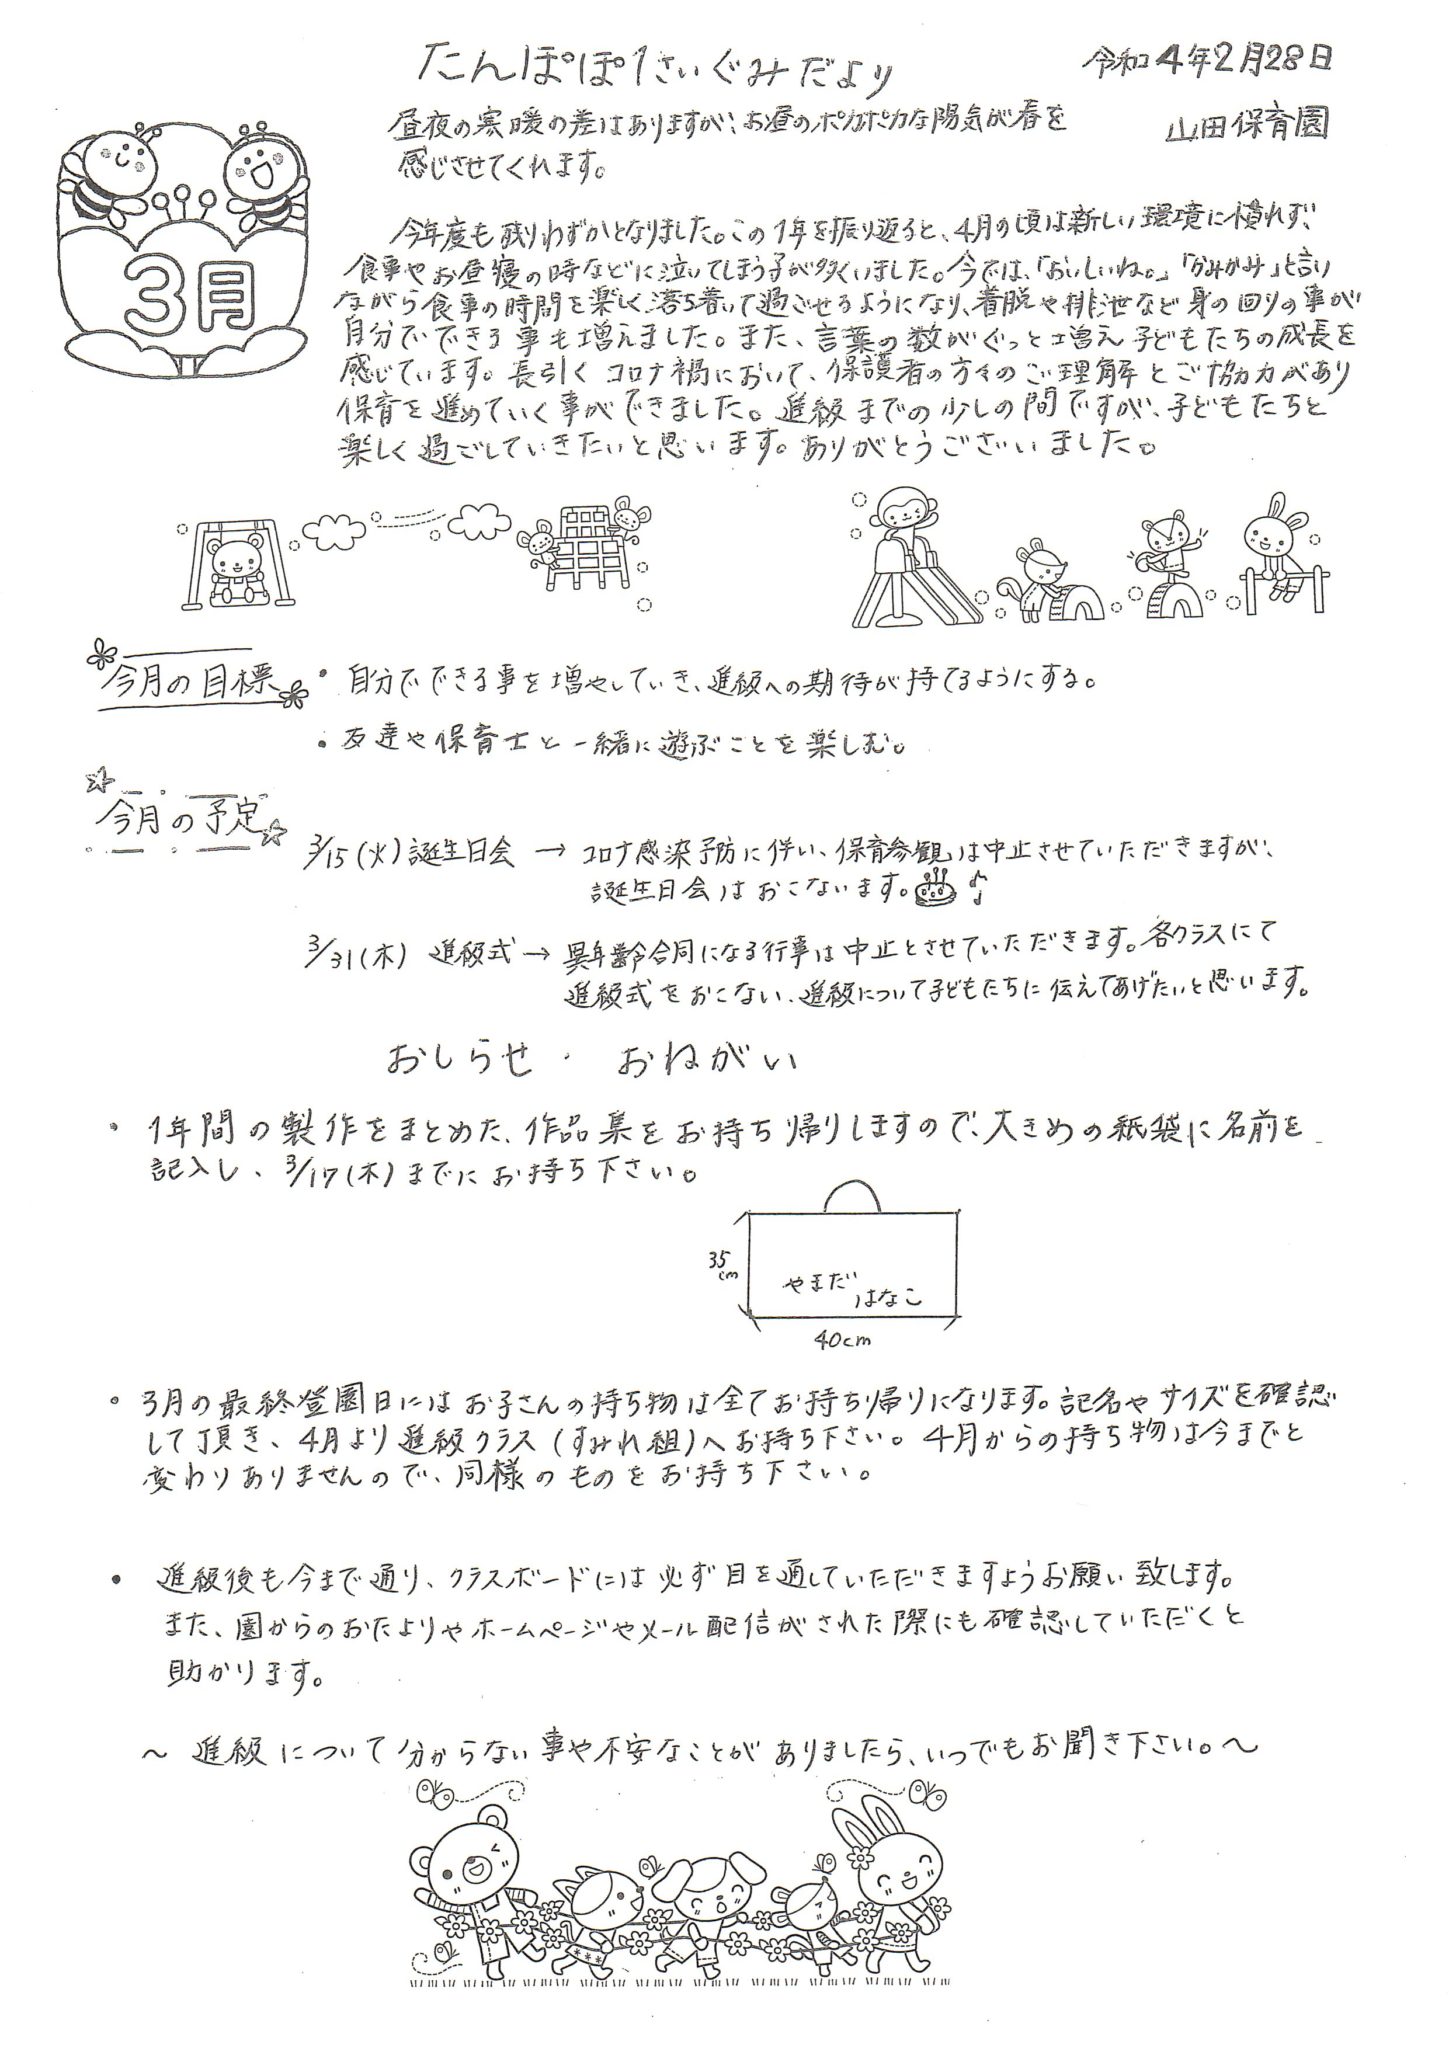 たんぽぽ1さいぐみだより
令和4年2月28日
山田保育園
昼夜の寒暖の差はありますが、お昼のポカポカな陽気が春を
感じさせてくれます。
3月
今年度も残りわずかとなりました。この1年を振り返ると、4月の頃は新しい環境に慣れず、
食事やお昼寝の時などに泣いてしまう子が多くいました。今では、「おいしいね。」「かみかみ」と言い
ながら食事の時間を楽しく落ち着いて過ごせるようになり、着脱や排泄など身の回りの事が
自分でできる事も増えました。また、言葉の数がぐっと増え子どもたちの成長を
感じています。長引くコロナ禍において、保護者の方々のご理解とご協力があり
保育を進めていく事ができました。進級までの少しの間ですが、子どもたちと
楽しく過ごしていきたいと思います。ありがとうございました。
今月の目標
・自分でできる事を増やしていき、進級への期待が持てるようにする。
・友達や保育士と一緒に遊ぶことを楽しむ。
今月の予定
3/15(火)誕生日会 → コロナ感染予防に伴い、保育参観は中止させていただきますが、
誕生日会はおこないます。♪
3/31(木) 進級式 → 異年齢合同になる行事は中止とさせていただきます。各クラスにて
進級式をおこない、進級について子どもたちに伝えてあげたいと思います。
おしらせ・おねがい
・1年間の製作をまとめた、作品集をお持ち帰りしますので、大きめの紙袋に名前を
記入し、3/17(木)までにお持ち下さい。
35cm
やまだ
はなこ
40cm
・3月の最終登園日にはお子さんの持ち物は全てお持ち帰りになります。記名やサイズを確認
して頂き、4月より進級クラス(すみれ組)へお持ち下さい。4月からの持ち物は今までと
変わりありませんので、同様のものをお持ち下さい。
・進級後も今まで通り、クラスボードには必ず目を通していただきますようお願い致します。
また、園からのおたよりやホームページやメール配信がされた際にも確認していただくと
助かります。
～ 進級について分からない事や不安なことがありましたら、いつでもお聞き下さい。～